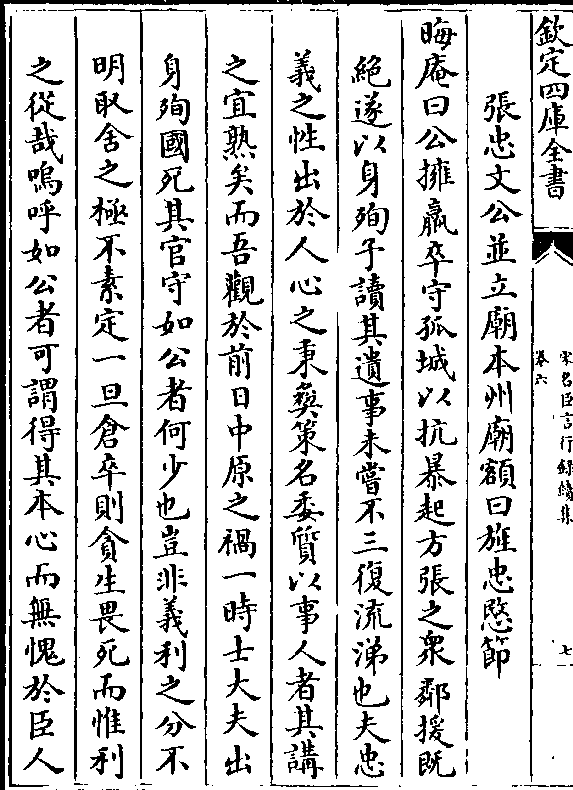 欽定四庫全書
宋名臣言行錄續集
卷六
七
張忠文公並立廟本州廟額曰旌忠愍節
晦庵曰公擁羸卒守孤城以抗暴起方張之衆鄰援既
絕遂以身殉予讀其遺事未嘗不三復流涕也夫忠
義之性出於人心之秉彛策名委質以事人者其講
之宜熟矣而吾觀於前日中原之禍一時士大夫出
身殉國死其官守如公者何少也豈非義利之分不
明取舍之極不素定一旦倉卒則貪生畏死而惟利
之從哉嗚呼如公者可謂得其本心而無愧於臣人